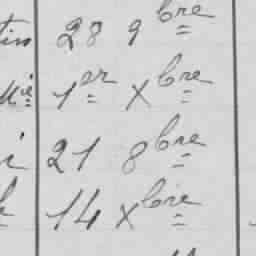 tin 28 9bre
Mie 1er Xbre
i 21 8bre
14 xbre